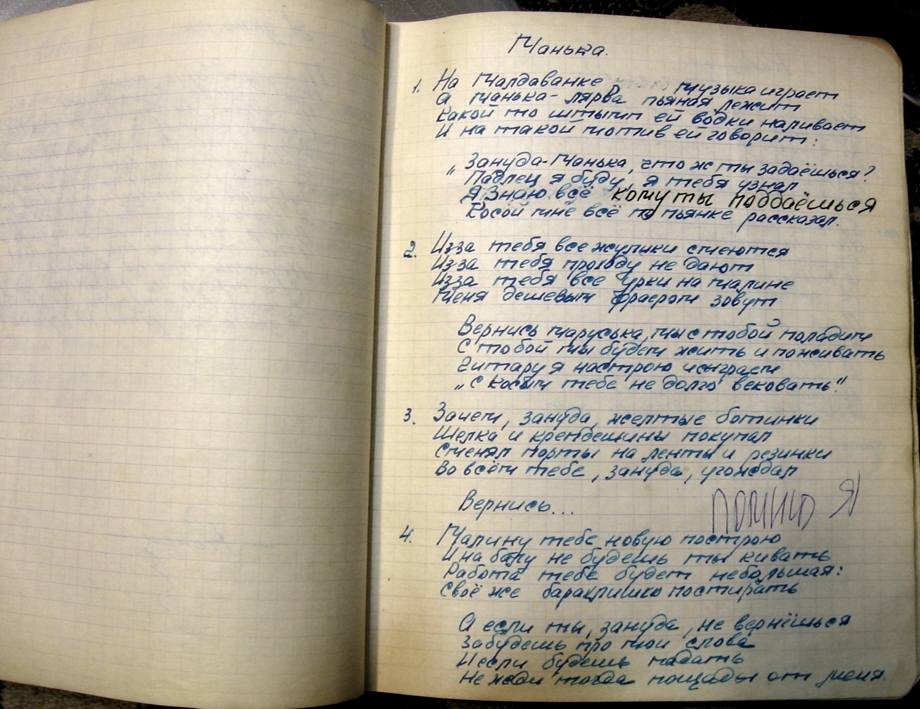 Манька.
1. На Малдаванке музыка играет
А Манька-лярва пьяная лежит
Какой то штымп ей водки наливает
И на такой мотив ей говорит:
„Зануда-Манька, что ж ты задаёшься?
Падлец я буду, я тебя узнал
Я знаю всё кому ты поддаёшься
Косой мне всё по пьянке рассказал.
2. Изза тебя все жулики смеются
Изза тебя проходу не дают
Изза тебя все урки на малине
Меня дешевым фраером зовут
Вернись Маруська, мы с тобой поладим
С тобой мы будем жить и поживать
Гитару я настрою и сыграем
„С косым тебе не долго вековать"
3. Зачем, зануда, желтые ботинки
Шелка и крепдешины покупал
Сменял порты на ленты и резинки
Во всём тебе, зануда, угождал
Вернись...
ПОМНЮ Я
4. Малину тебе новую построю
И на бану не будешь ты кивать
Работа тебе будет небольшая:
Своё же барахлишко постирать
А если ты, зануда, не вернёшься
Забудешь про мои слова
И если будешь падать
Не жди тогда пощады от меня.